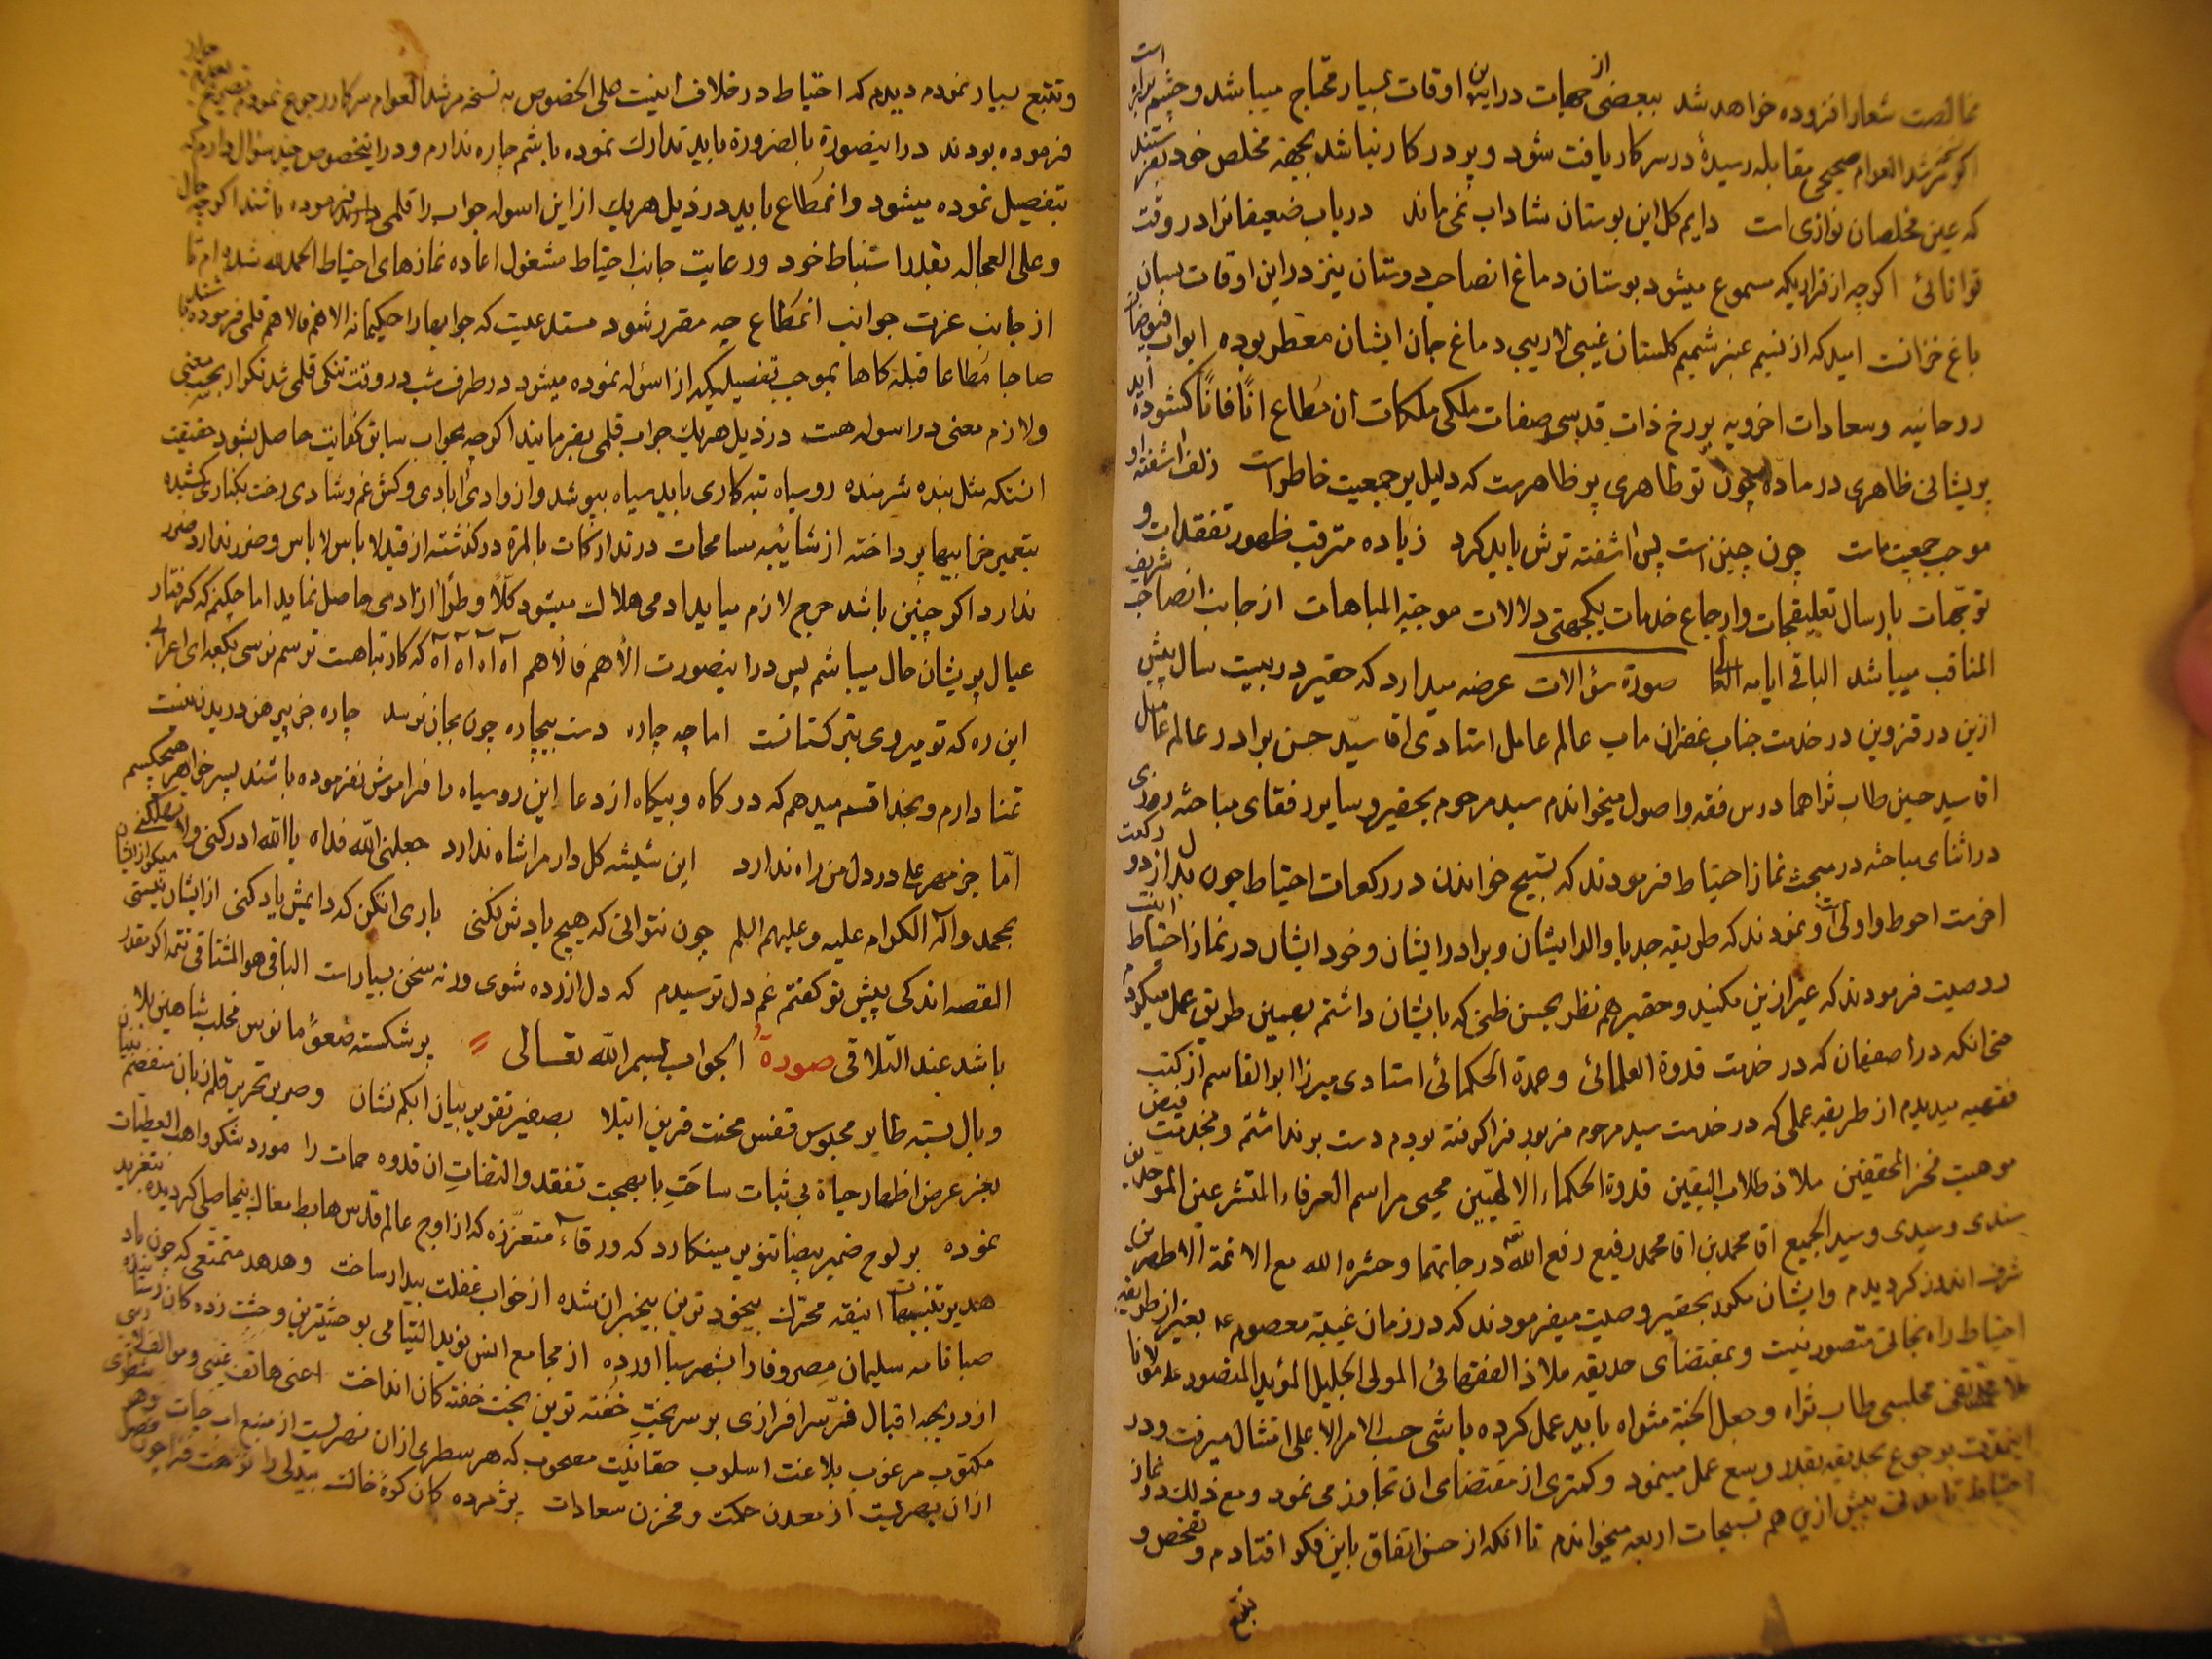 مخالصت شعار افزوده خواهد شد ببعضی از جهات در این اوقات بسیار محتاج میباشد و چشم براه است
اگر مرشد العوام صحیحی مقابله رسیدهٔ در سرکار یافت شود و پر در کار نباشد بجهة مخلص خود بفرستند
که عین مخلصان نوازی است دایم گل این بوستان شاداب نمی ماند دریاب ضعیفانرا در وقت
توانائی اگرچه از قراریکه مسموع میشود بوستان دماغ انصاحب دوستان نیز در این اوقات بسان
باغ خزانست امید که از نسیم عنبر شمیم گلستان غیبی لاریبی دماغ جان ایشان معطر بوده ابواب فیوضات
روحانیه و سعادات اخرویه بر رخ ذات قدسی صفات ملکی ملکات ان مطاع انًا فانًا گشوده اید
پریشانی ظاهری در ماده چون تو ظاهری پر ظاهرست که دلیل بر جمعیت خاطر است زلف اشفته او
موجب جمعیت ماست چون چنین است پس اشفته ترش باید کرد زیاده مترقب ظهور تفقدات و
توجهات بارسال تعلیقجات وارجاع خدمات یکجهتی دلالات موجبة المباهات از جانب انصاحب شریف
المناقب میباشد الباقی ایامه الی صورة سؤالات عرضه میدارد که حقیر در بیست سال پیش
ازین در قزوین در خدمت جناب غفران ماب عالم عامل استادی اقا سید حسن برادر عالم عامل
اقا سید حسین طاب ثراهما درس فقه واصول میخواندم سید مرحوم بحقیر و سایر رفقای مباحثه روزی
در اثنای مباحثه در مبحث نماز احتیاط فرمودند که تسبیح خواندن در رکعات احتیاط چون بدل از دو رکعت
اخرست احوط واولی است و نمودند که طریقه جد یا والد ایشان و برادر ایشان و خود ایشان در نماز احتیاط اینست
و وصیت فرمودند که غیر ازین مکنید و حقیر هم نظر بحسن ظنی که بایشان داشتم بهمین طریق عمل میکردم
حتی انکه در اصفهان که در خدمت قدوة العلمائی و عمدة الحکمائی استادی میرزا ابو القاسم از کتب
فقهیه میدیدم از طریقه عملی که در خدمت سید مرحوم مزبور فرا گرفته بودم دست بر نداشتم و بخدمت فیض
موهبت فخر المحققین ملاذ طلاب الیقین قدوة الحکماء الالهیین محیی مراسم العرفاء المتشرعین الموحدین
سندی و سیدی و سید الجمیع اقا محمد بن اقا محمد رفیع رفع الله درجاتهما و حشره الله مع الائمة الاطهرین
شرف اندوز گردیدم و ایشان مکرر بحقیر وصیت میفرمودند که در زمان غیبة معصوم ع بغیر از طریقه
احتیاط راه نجاتی متصور نیست و بمقتضای حدیقه ملاذ الفقهائی المولی الجلیل المؤید المنصور مولانا
محمد تقی مجلسی طاب ثراه و جعل الجنة مثواه باید عمل کرده باشی حسب الامر الاعلی امتثال میرفت و در
اینمدت برجوع بحدیقه بقدر وسع عمل مینمود و کمتری از مقتضای ان تجاوز می نمود و مع ذلک در نماز
احتیاط تا مدتی پیش ازین هم تسبیحات اربعه میخواندم تا انکه از حسن اتفاق باین فکر افتادم و تفحص و
تتبع
وتتبع بسیار نمودم دیدم که احتیاط در خلاف اینست علی الخصوص به نسخه مرشد العوام سرکار رجوع نمودم
فرموده بودند در اینصورة بالضرورة باید تدارک نموده باشم چاره ندارم و در اینخصوص چند سؤال دارم که
بتفصیل نموده میشود و انمطاع باید در ذیل هر یک از این اسوله جواب را قلمی فرموده باشند اگرچه حال
وعلی العجاله بقدر استنباط خود و رعایت جانب احتیاط مشغول اعاده نمازهای احتیاط الحمدلله شده ام تا
از جانب عزت جوانب انمطاع چه مقرر شود مستدعیست که جوابها را حکیمانه الاهم فالاهم قلمی فرموده باشند
صاحبا مطاعا قبله گاها بموجب تفصیلیکه از اسؤله نموده میشود در طرف شب در وقت تنگی قلمی شد تکرار بحسب معنی
ولازم معنی در اسوله هست در ذیل هر یک جواب قلمی بفرمایند اگرچه بجواب سابق کفایت حاصل بشود حقیقت
انستکه مثل بنده شرمنده روسیاه تبه کاری باید سیاه بپوشد و از وادی ابادی و کشش غم و شادی رخت بکناری کشیده
بتعمیر خرابیها پرداخته از شائبه مسامحات در تدارکات بالمرة در گذشته از قبیل لاباس لاباس و ضرر ندارد ضرر
ندارد اگر چنین باشد حرج لازم میاید ادمی هلاک میشود کلًا و طرًا ازادی حاصل نماید اما چکنم که گرفتار
عیال پریشان حال میباشم پس در اینصورت الأهم فالأهم اه اه اه اه که کار تباهست ترسم نرسی بکعبه ای اعرابی
این ره که تو میروی بترکستانست اما چه چاره دست بیچاره چون بجان نرسد چاره جز پیرهن دریدن نیست
تمنا دارم و بخدا قسم میدهم که در گاه و بیگاه از دعا این روسیاه را فراموش نفرموده باشند
امّا جز مهر علی در دل من راه ندارد این شیشه گل دار مرا شاه ندارد جعلنی الله فداه یا الله ادرکنی ولا تهلکنی
بمحمد واله الکرام علیه و علیهم السلم چون نتوانی که هیچ یادش نکنی باری انکن که دایمش یاد کنی
القصه اندکی پیش تو گفتم غم دل ترسیدم که دل ازرده شوی ورنه سخن بسیار است الباقی هو المشتاقی
باشد عند التلاقی صورةُ الجواب بسم الله تعالی پر شکسته مخلب شاهین بلا
وبال بسته طایر محبوس قفس محنت قرین ابتلا بصفیر تقریر بیان ابکم نشان وصریر تحریر قلم زبان
بغیر عرض اظهار حیاة بی ثبات ساحَتِ با بهجت تفقد والتفات ان قدوه حمات را مورد شکر واهب العطیات
نموده بر لوح ضمیر بیضا تنویر مینگارد که ورقاءَ متعززه که از اوج عالم قدس هابط مغاک بیحاصلی گردیده
هدیر تنبیهات انیقه محرّک بیخود ترین بیخبران شده از خواب غفلت بیدار ساخت و هدهد متمتعی که چون باد
صبا نامه سلیمان مصر وفا را بشهر سبا اورده از مجامع انس نوید التیامی بر حشیترین وحشت زده گان رسانیده
از دریچه اقبال سر افرازی بر سر بخت خفته ترین بخت خفته گان انداخت اعنی هاتف غیبی
مکتوب مرغوب بلاغت اسلوب حقانیت مصحوب که هر سطری ازان نهریست از منبع اب حیات
ازان بحریست از معدن حکمت و مخزن سعادات پژمرده گان کوره